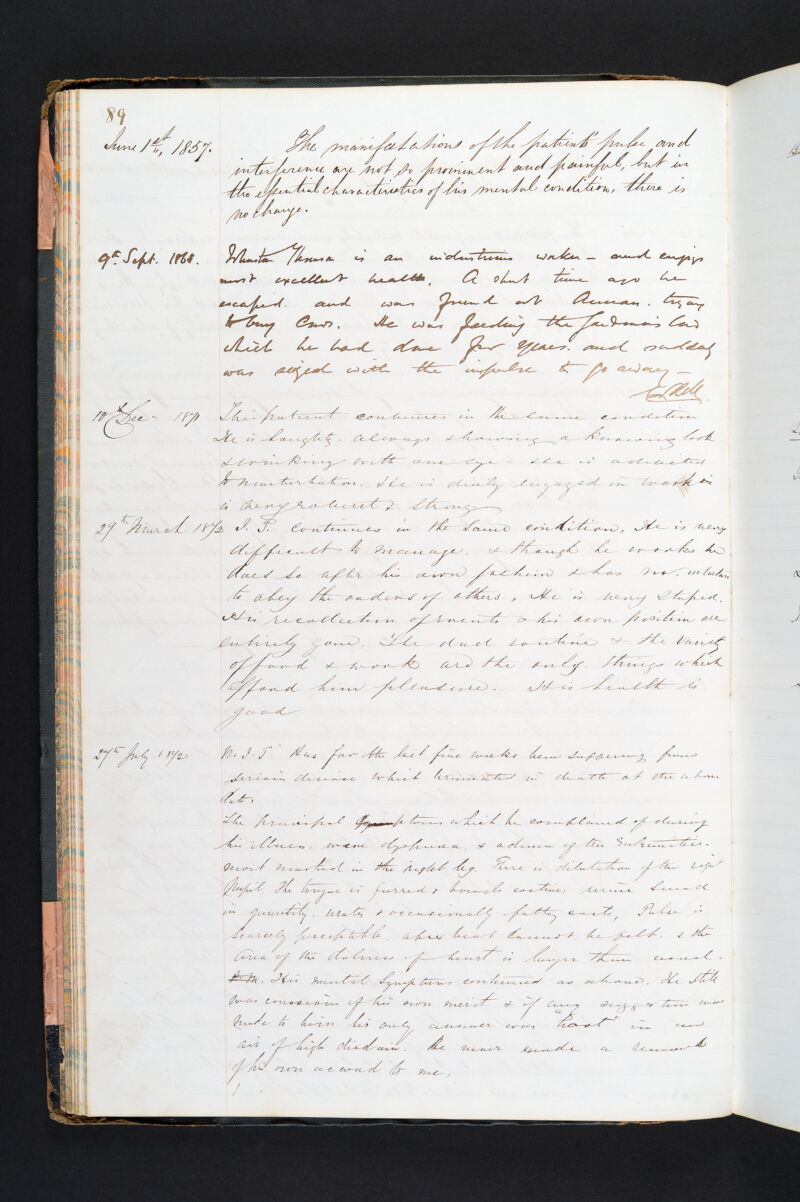 89
June 1st, 1857. The manifestations of the patient's pulse and
interference are not so prominent and painful, but in
the essential characteristics of his mental condition, there is
no change.
9th Sept. 1868. Johnston Thomson is an industrious worker - and enjoys
most excellent health. A short time ago he
escaped. and was found at Annan. trying
to buy Cows. He was feeding the
which he had done for years and suddenly
was seized with the impulse to go away -
10th Dec - 1871 This patient continues in the same condition
He is haughty. always showing a knowing look
& winking with one eye - & he is addicted
to masturbation. He is daily engaged in work &
is very robust & strong
27th March 1872 J. T. continues in the same condition, He is very
difficult to manage. & though he works he
does so after his own fashion & has no
to obey the orders of others. He is very stupid.
His recollection of events & his own position are
entirely gone. The dull routine & the variety
of food & work are the only things which
afford him pleasure. His health is
good
27th July 1872 J. T. Has for the last five weeks been suffering from
serious disease which terminated in death at the above
date.
The principal symptoms which he complained of during
his illness, were dyspnoea, & oedema of the Extremities.
most marked in the right leg. There is dilatation of the right
Pupil, The tongue is furred & bowels costive, urine small
in quantity, urates & occasionally fatty casts, Pulse is
scarcely perceptible. apex beat cannot be felt. & the
area of the dulness of heart is larger than usual.
His mental Symptoms continued as above. He still
was conscious of his own merit & if any suggestion was
made to him his only answer was in an
air of high disdain. He never made a remark
of his own accord to me.